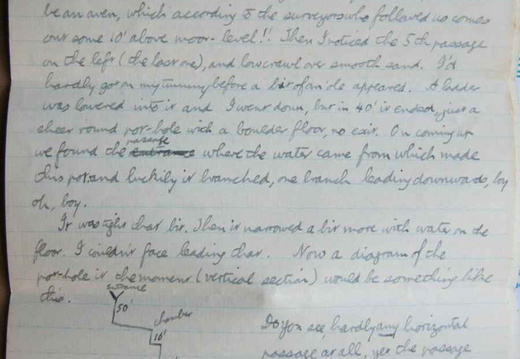 be an aven, which according to the surveyors who followed us comes
out some 10' above moor-level!! Then I noticed the 5th passage
on the left (the last one), and low crawl over smooth sand. I'd
hardly got on my tummy before a bit of a hole appeared. A ladder
was lowered into it and I went down, but in 40' it ended, just a
sheer round pot-hole with a boulder floor, no exit. On coming up
we found the passage where the water came from which made
this pot and luckily it branched, one branch leading downwards, boy
oh, boy.
It was tight that bit. Then it narrowed a bit more with water on the
floor. I couldn't face leading that. Now a diagram of the
pot-hole at the moment (vertical section) would be something like
this.
entrance
50'
chamber
10'
Do you see, hardly any horizontal
passage at all, yet the passage